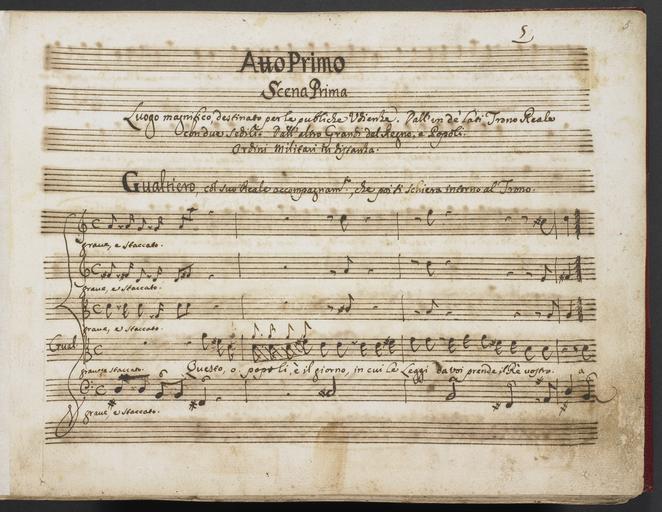 5
5
Atto Primo
Scena Prima
Luogo magnifico, destinato per le publiche Udienze. Dall' un de' lati Trono Reale
con due Sedili. Dall' altro Grandi del Regno, e Popoli.
Ordini Militari in distanza.
Gualtiero, col suo Reale accompagnam.to, che poi si schiera intorno al Trono.
grave, e staccato.
grave, e staccato.
grave, e staccato.
Gual.
grave, e staccato. Questo, o popoli, è il giorno, in cui le Leggi da voi prende il Rè vostro. a
grave, e staccato.